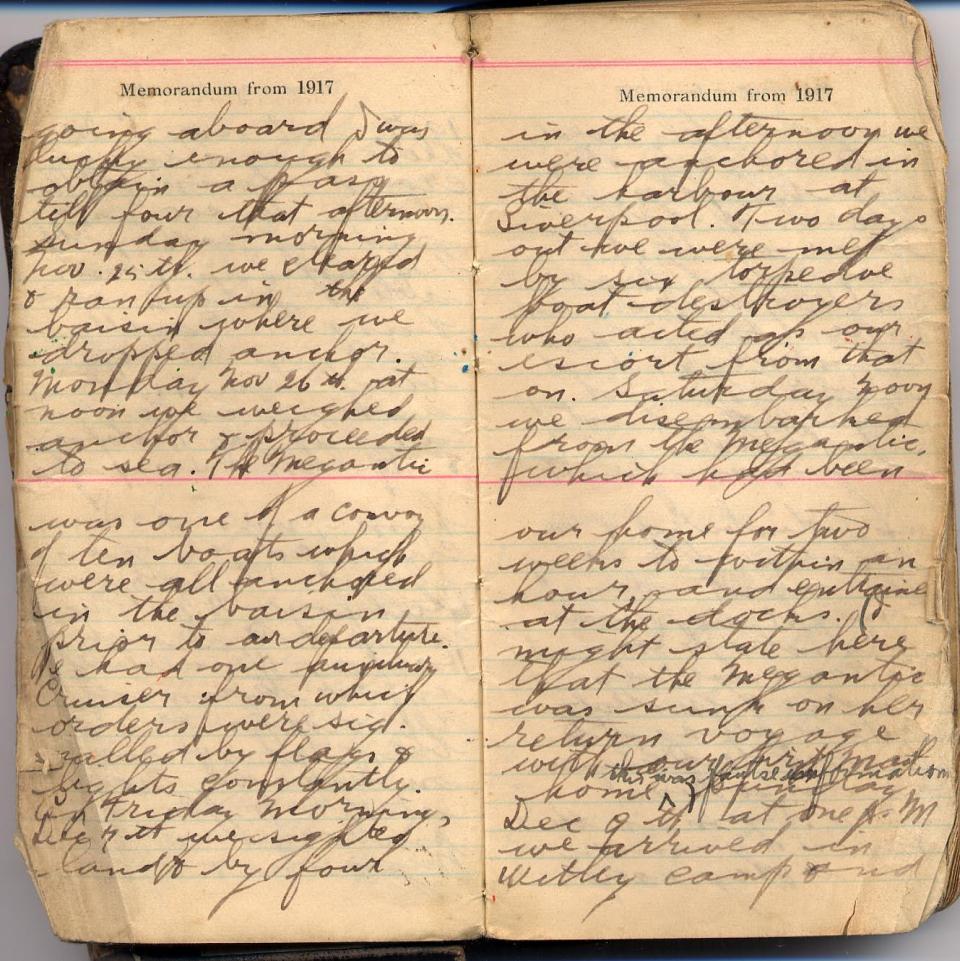 Memorandum from 1917
going aboard I was
lucky enough to
obtain a pass
till four that afternoon.
Sunday morning
Nov. 25 th. we cleared
& ran up in the
baisin where we
dropped anchor.
Monday Nov 26 th. at
noon we weighed
anchor & proceeded
to sea. The Megantic
was one of a convoy
of ten boats which
were all anchored
in the baisin
prior to our departure.
We had one auxiliary
Cruiser from which
orders were sig-
nalled by flags &
lights constantly.
On Friday morning,
Dec 7 th we sighted
land & by four
Memorandum from 1917
in the afternoon we
were anchored in
the harbour at
Liverpool. Two days
out we were met
by six torpedoe
boat destroyers
who acted as our
escort from that
on. Saturday noon
we disembarked
from the Megantic,
which had been
our home for two
weeks to within an
hour, and entraine
at the docks. (I
might state here
that the Megantic
was sunk on her
return voyage
with our first mail
this was faulse information
home.) Sunday
Dec 9 th at one P.M
we arrived in
Witley camp and